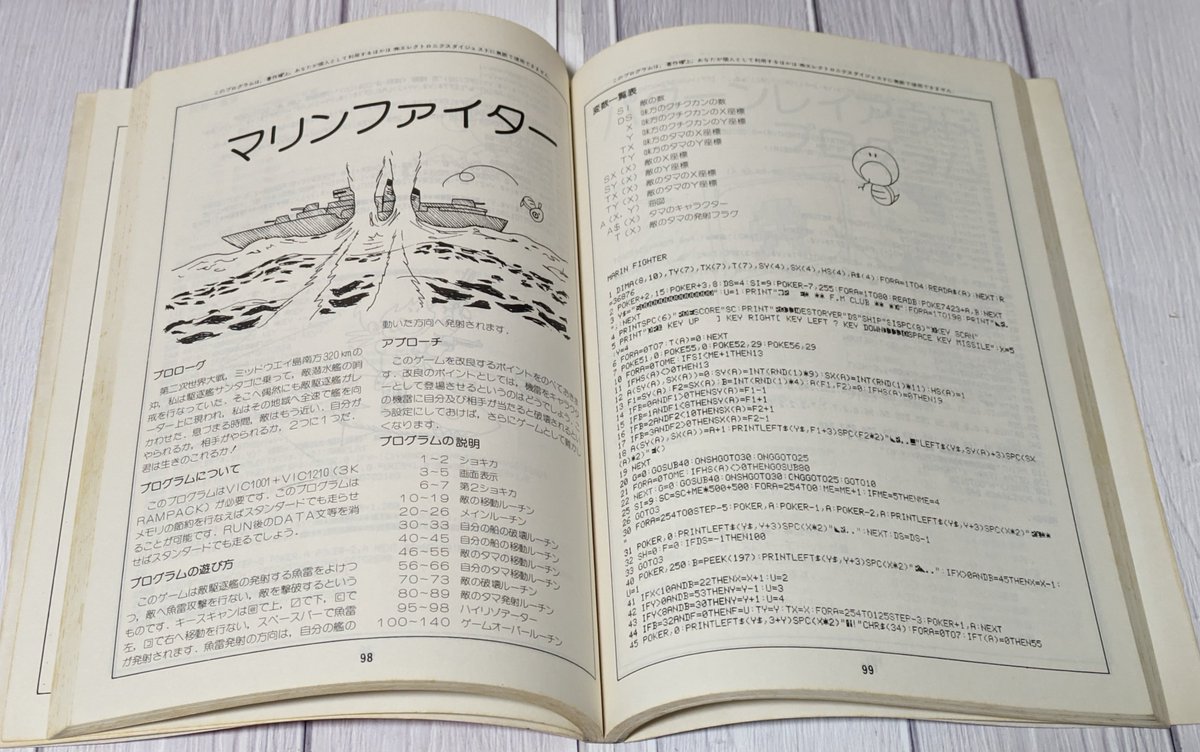 このプログラムは，著作権上，あなたが個人として利用するほかは㈱エレクトロニクスダイジェストに無断で使用できません．
マリンファイター
プロローグ
第二次世界大戦，ミッドウェイ島南方320kmの
沖，私は駆逐艦サンタゴに乗って，敵潜水艦の哨
戒を行なっていた．そこへ偶然にも敵駆逐艦がレ
ーダー上に現われ，私はその地域へ全速で艦を向
かわせた．息つまる時間，敵はもう近い，自分が
やられるか，相手がやられるか，2つに1つだ．
君は生きのこれるか！
プログラムについて
このプログラムはVIC1001＋VIC1210（3K
RAMPACK）が必要です．このプログラムは
メモリの節約を行なえばスタンダードでも走らせ
ることが可能です．RUN後のDATA文等を消
せばスタンダードでも走るでしょう．
プログラムの遊び方
このゲームは敵駆逐艦の発射する魚雷をよけつ
つ，敵へ魚雷攻撃を行ない，敵を撃破するという
ものです．キースキャンは
で上，
で下，
で
左，
で右へ移動を行ない，スペースバーで魚雷
が発射されます．魚雷発射の方向は，自分の艦の
動いた方向へ発射されます．
アプローチ
このゲームを改良するポイントをのべておきま
す．改良のポイントとしては，機雷をキャラクタ
ーとして登場させるというのはどうでしょう．こ
の機雷に自分及び相手が当たると破壊されるとい
う設定にしておけば，さらにゲームとして
くなります．
プログラムの説明
1～2 ショキカ
3～5 画面表示
6～7 第2ショキカ
10～19 敵の移動ルーチン
20～26 メインルーチン
30～33 自分の船の破壊ルーチン
40～45 自分の船の移動ルーチン
46～55 敵のタマの移動ルーチン
56～66 自分のタマ移動ルーチン
70～73 敵の破壊ルーチン
80～89 敵のタマ発射ルーチン
95～98 ハイリゾデーター
100～140 ゲームオーバールーチン
98
このプログラムは，著作権上，あなたが個人として利用するほかは㈱エレクトロニクスダイジェストに無断で使用できません．
変数一覧表
SI 敵の数
DS 味方のクチクカンの数
X 味方のクチクカンのX座標
Y 味方のクチクカンのY座標
TX 味方のタマのX座標
TY 味方のタマのY座標
SX(X) 敵のX座標
SY(X) 敵のY座標
TX(X) 敵のタマのX座標
TY(X) 敵のタマのY座標
A(X, Y) 海図
A$(X) タマのキャラクター
T(X) 敵のタマの発射フラグ
MARIN FIGHTER
1 DIMA(8,10),TY(7),TX(7),T(7),SY(4),SX(4),HS(4),A$(4):FORA=1TO4:READA$(A):NEXT:R
=36876
2 POKER+2,15:POKER+3,8:DS=4:SI=9:POKER-7,255:FORA=1TO80:READB:POKE7423+A,B:NEXT
:U=1:PRINT
** F.M CLUB **
:FORA=1TO198:PRINT
:NEXT
4 PRINTSPC(6)
SCORE"SC:PRINT
DESTORYER"DS"SHIP"SISPC(8)
KEY SCAN"
5 PRINT
KEY UP
] KEY RIGHT[ KEY LEFT ? KEY DOWN
SPACE KEY MISSILE":X=5
:Y=4
6 FORA=0TO7:T(A)=0:NEXT
7 POKE51,0:POKE55,0:POKE52,29:POKE56,29
10 FORA=0TOME:IFSI<ME+1THEN13
11 IFHS(A)<>0THEN13
12 A(SY(A),SX(A))=0:SY(A)=INT(RND(1)*9):SX(A)=INT(RND(1)*11):HS(A)=1
13 F1=SY(A):F2=SX(A):B=INT(RND(1)*4):A(F1,F2)=0:IFHS(A)=0THEN19
14 IFB=0ANDF1>0THENSY(A)=F1-1
15 IFB=1ANDF1<8THENSY(A)=F1+1
16 IFB=2ANDF2<10THENSX(A)=F2+1
17 IFB=3ANDF2>0THENSX(A)=F2-1
18 A(SY(A),SX(A))=A+1:PRINTLEFT$(Y$,F1+3)SPC(F2*2)
LEFT$(Y$,SY(A)+3)SPC(SX
(A)*2)
19 NEXT
20 G=0:GOSUB40:ONSHGOTO30:ONGGOTO25
21 FORA=0TOME:IFHS(A)<>0THENGOSUB80
22 NEXT:G=0:GOSUB40:ONSHGOTO30:ONGGOTO25:GOTO10
25 SI=9:SC=SC+ME*500+500:FORA=254TO0:ME=ME+1:IFME=5THENME=4
26 GOTO3
30 FORA=254TO0STEP-5:POKER,A:POKER-1,A:POKER-2,A:PRINTLEFT$(Y$,Y+3)SPC(X*2)
31 POKER,0:PRINTLEFT$(Y$,Y+3)SPC(X*2)
:NEXT:DS=DS-1
32 SH=0:F=0:IFDS=-1THEN100
33 GOTO3
40 POKER,250:B=PEEK(197):PRINTLEFT$(Y$,Y+3)SPC(X*2)
:IFX>0ANDB=45THENX=X-1:
U=1
41 IFX<10ANDB=22THENX=X+1:U=2
42 IFY>0ANDB=53THENY=Y-1:U=3
43 IFY<8ANDB=30THENY=Y+1:U=4
44 IFB=32ANDF=0THENF=U:TY=Y:TX=X:FORA=254TO125STEP-3:POKER+1,A:NEXT
45 POKER,0:PRINTLEFT$(Y$,3+Y)SPC(X*2)
CHR$(34):FORA=0TO7:IFT(A)=0THEN55
99